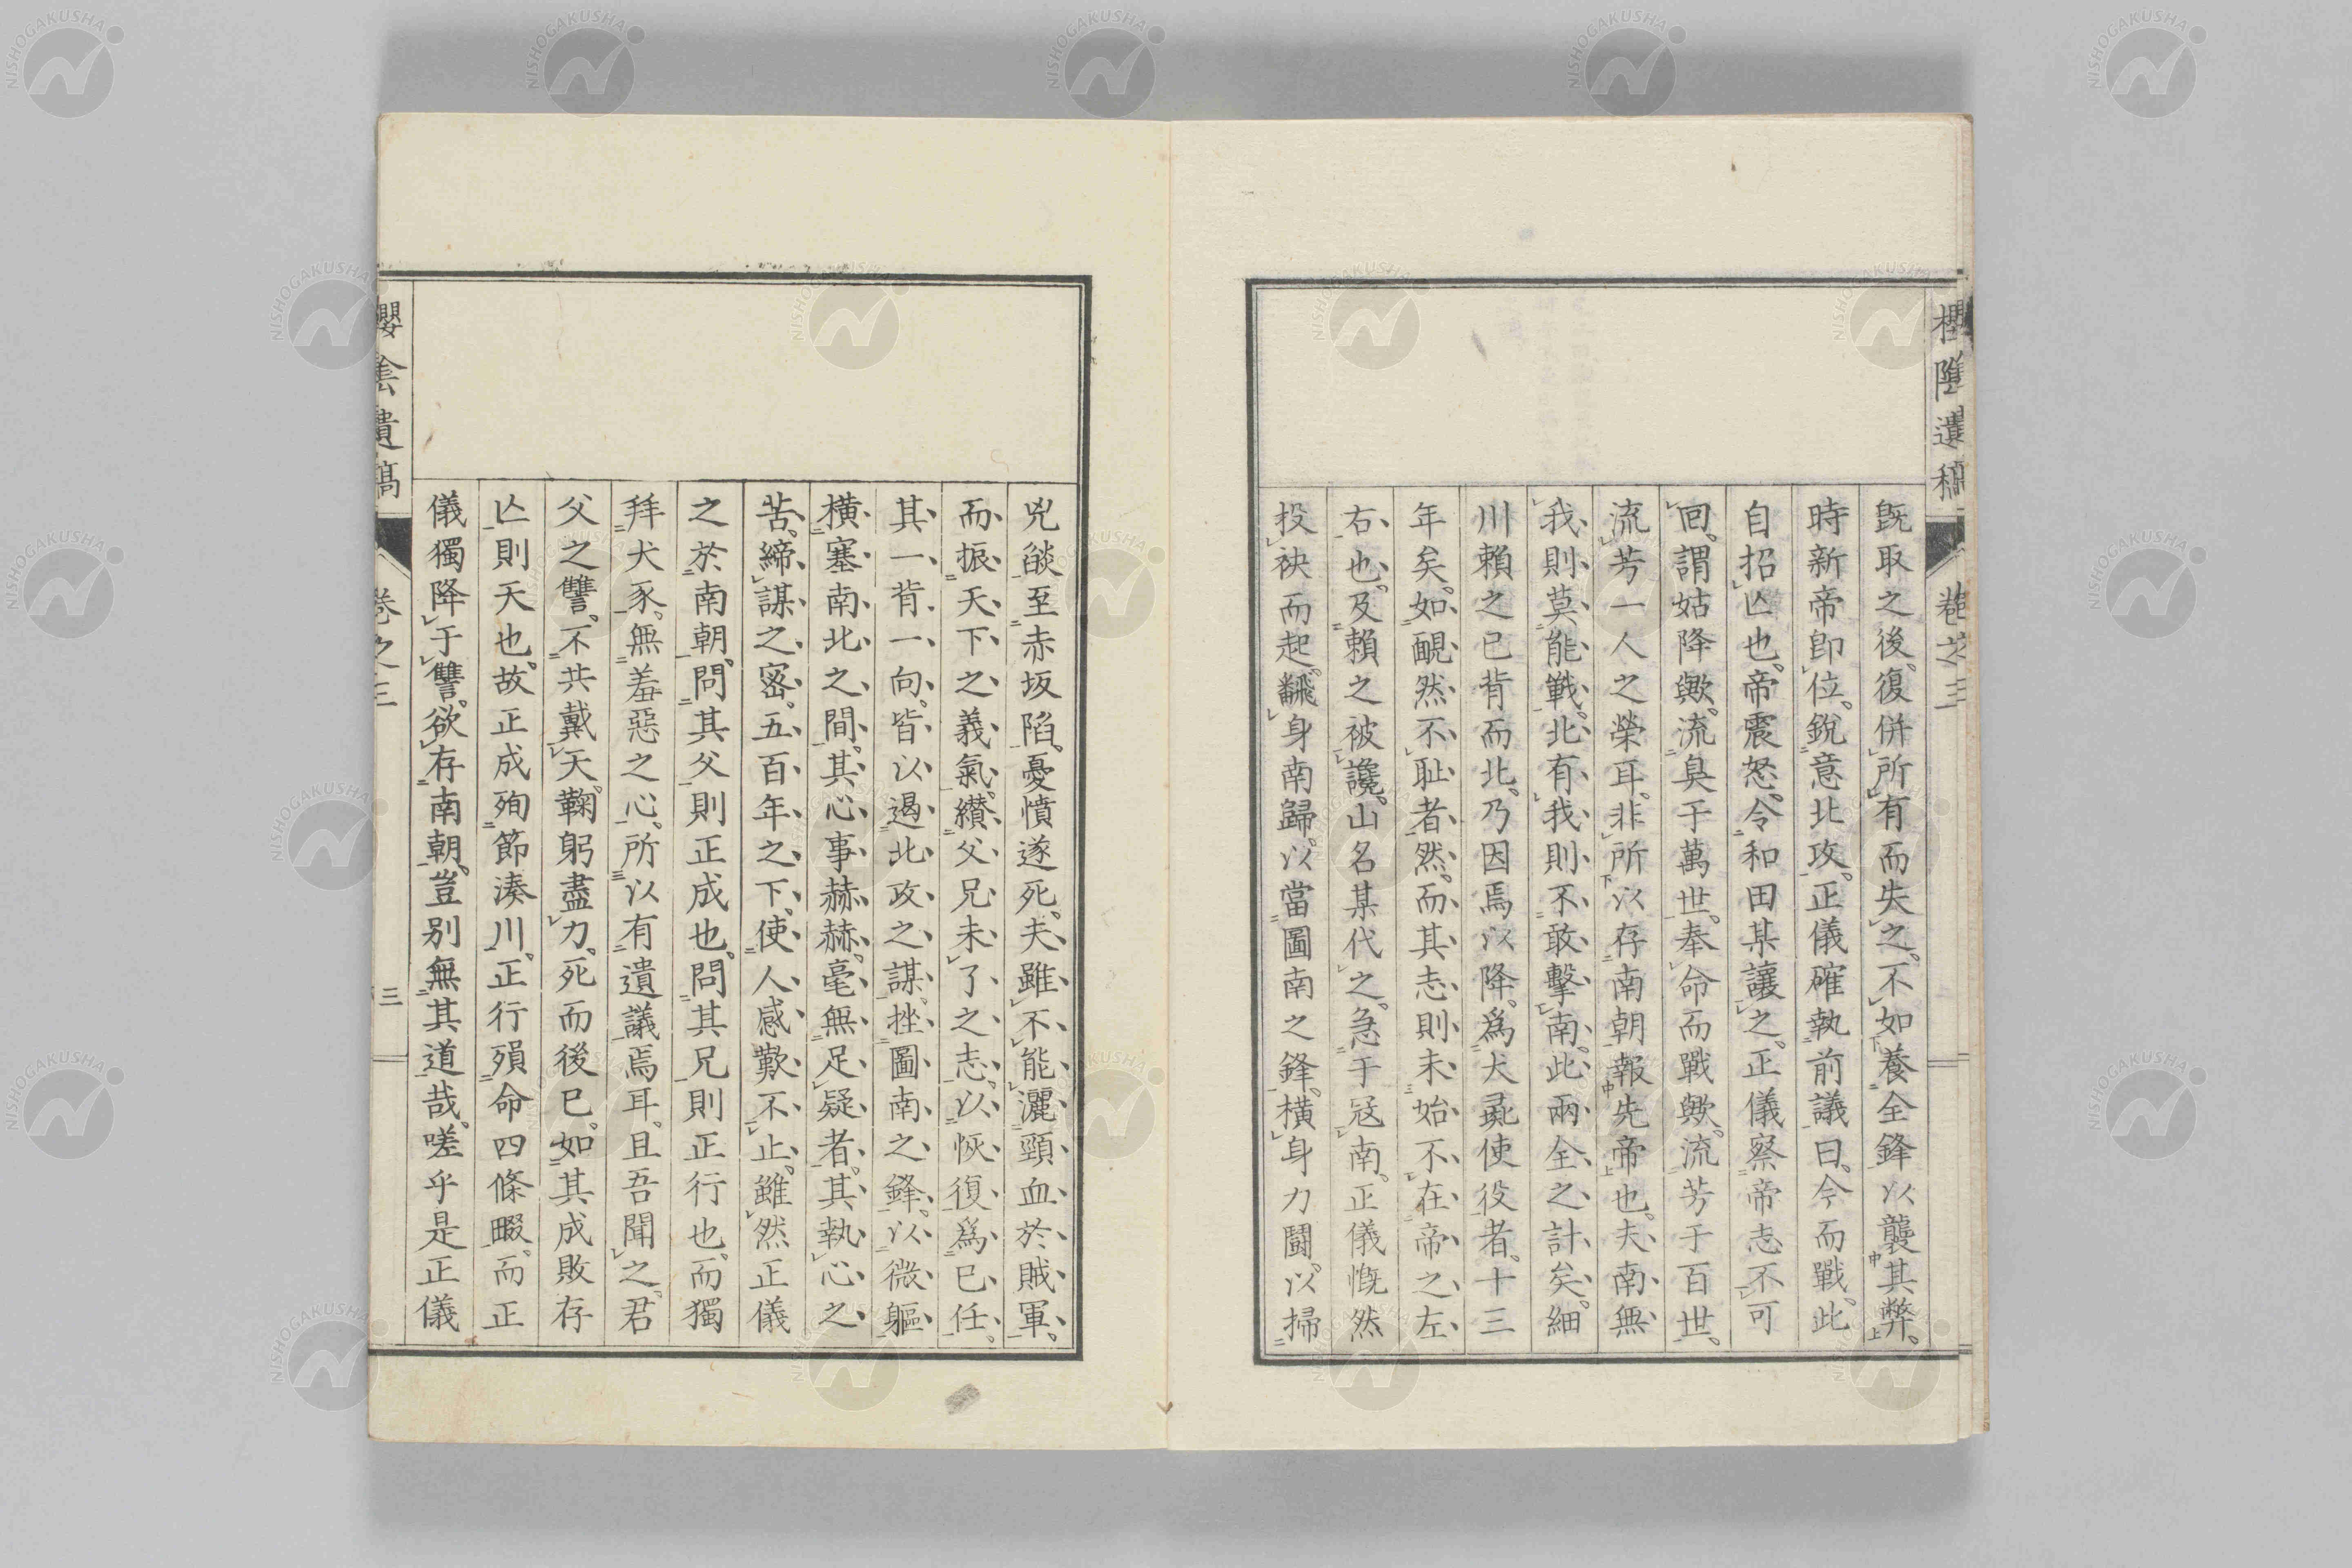 櫻陰遺稿
卷之三
既取之後。復併所有而失之。不如養全鋒以襲其弊。
時新帝卽位。銳意北攻。正儀確執前議曰。今而戰。此
自招亾也。帝震怒。令和田某讓之。正儀察帝志不可
回。謂姑降歟。流臭于萬世。奉命而戰歟。流芳于百世。
流芳一人之榮耳。非所以存南朝報先帝也。夫南無
我則莫能戰。北有我則不敢擊南。此兩全之計矣。細
川賴之已背而北。乃因焉以降。爲犬彘使役者。十三
年矣。如靦然不耻者然。而其志則未始不在帝之左
右也。及賴之被讒。山名某代之。急于冦南。正儀慨然
投袂而起。飜身南歸。以當圖南之鋒。橫身力鬪。以掃
兇燄至赤坂陷。憂憤遂死。夫雖不能灑頸血於賊軍。
而振天下之義氣。纉父兄未了之志。以恢復爲己任。
其一背一向。皆以遏北攻之謀。挫圖南之鋒。以微軀
橫塞南北之間。其心事赫赫。毫無足疑者。其執心之
苦。締謀之密。五百年之下。使人感歎不止。雖然正儀
之於南朝。問其父則正成也。問其兄則正行也。而獨
拜犬豕。無羞惡之心。所以有遺議焉耳。且吾聞之。君
父之讐。不共戴天。鞠躬盡力。死而後已。如其成敗存
亾則天也。故正成殉節湊川。正行殞命四條畷。而正
儀獨降于讐。欲存南朝。豈別無其道哉。嗟乎是正儀
櫻陰遺稿
卷之三
三
NISHOGAKUSHA